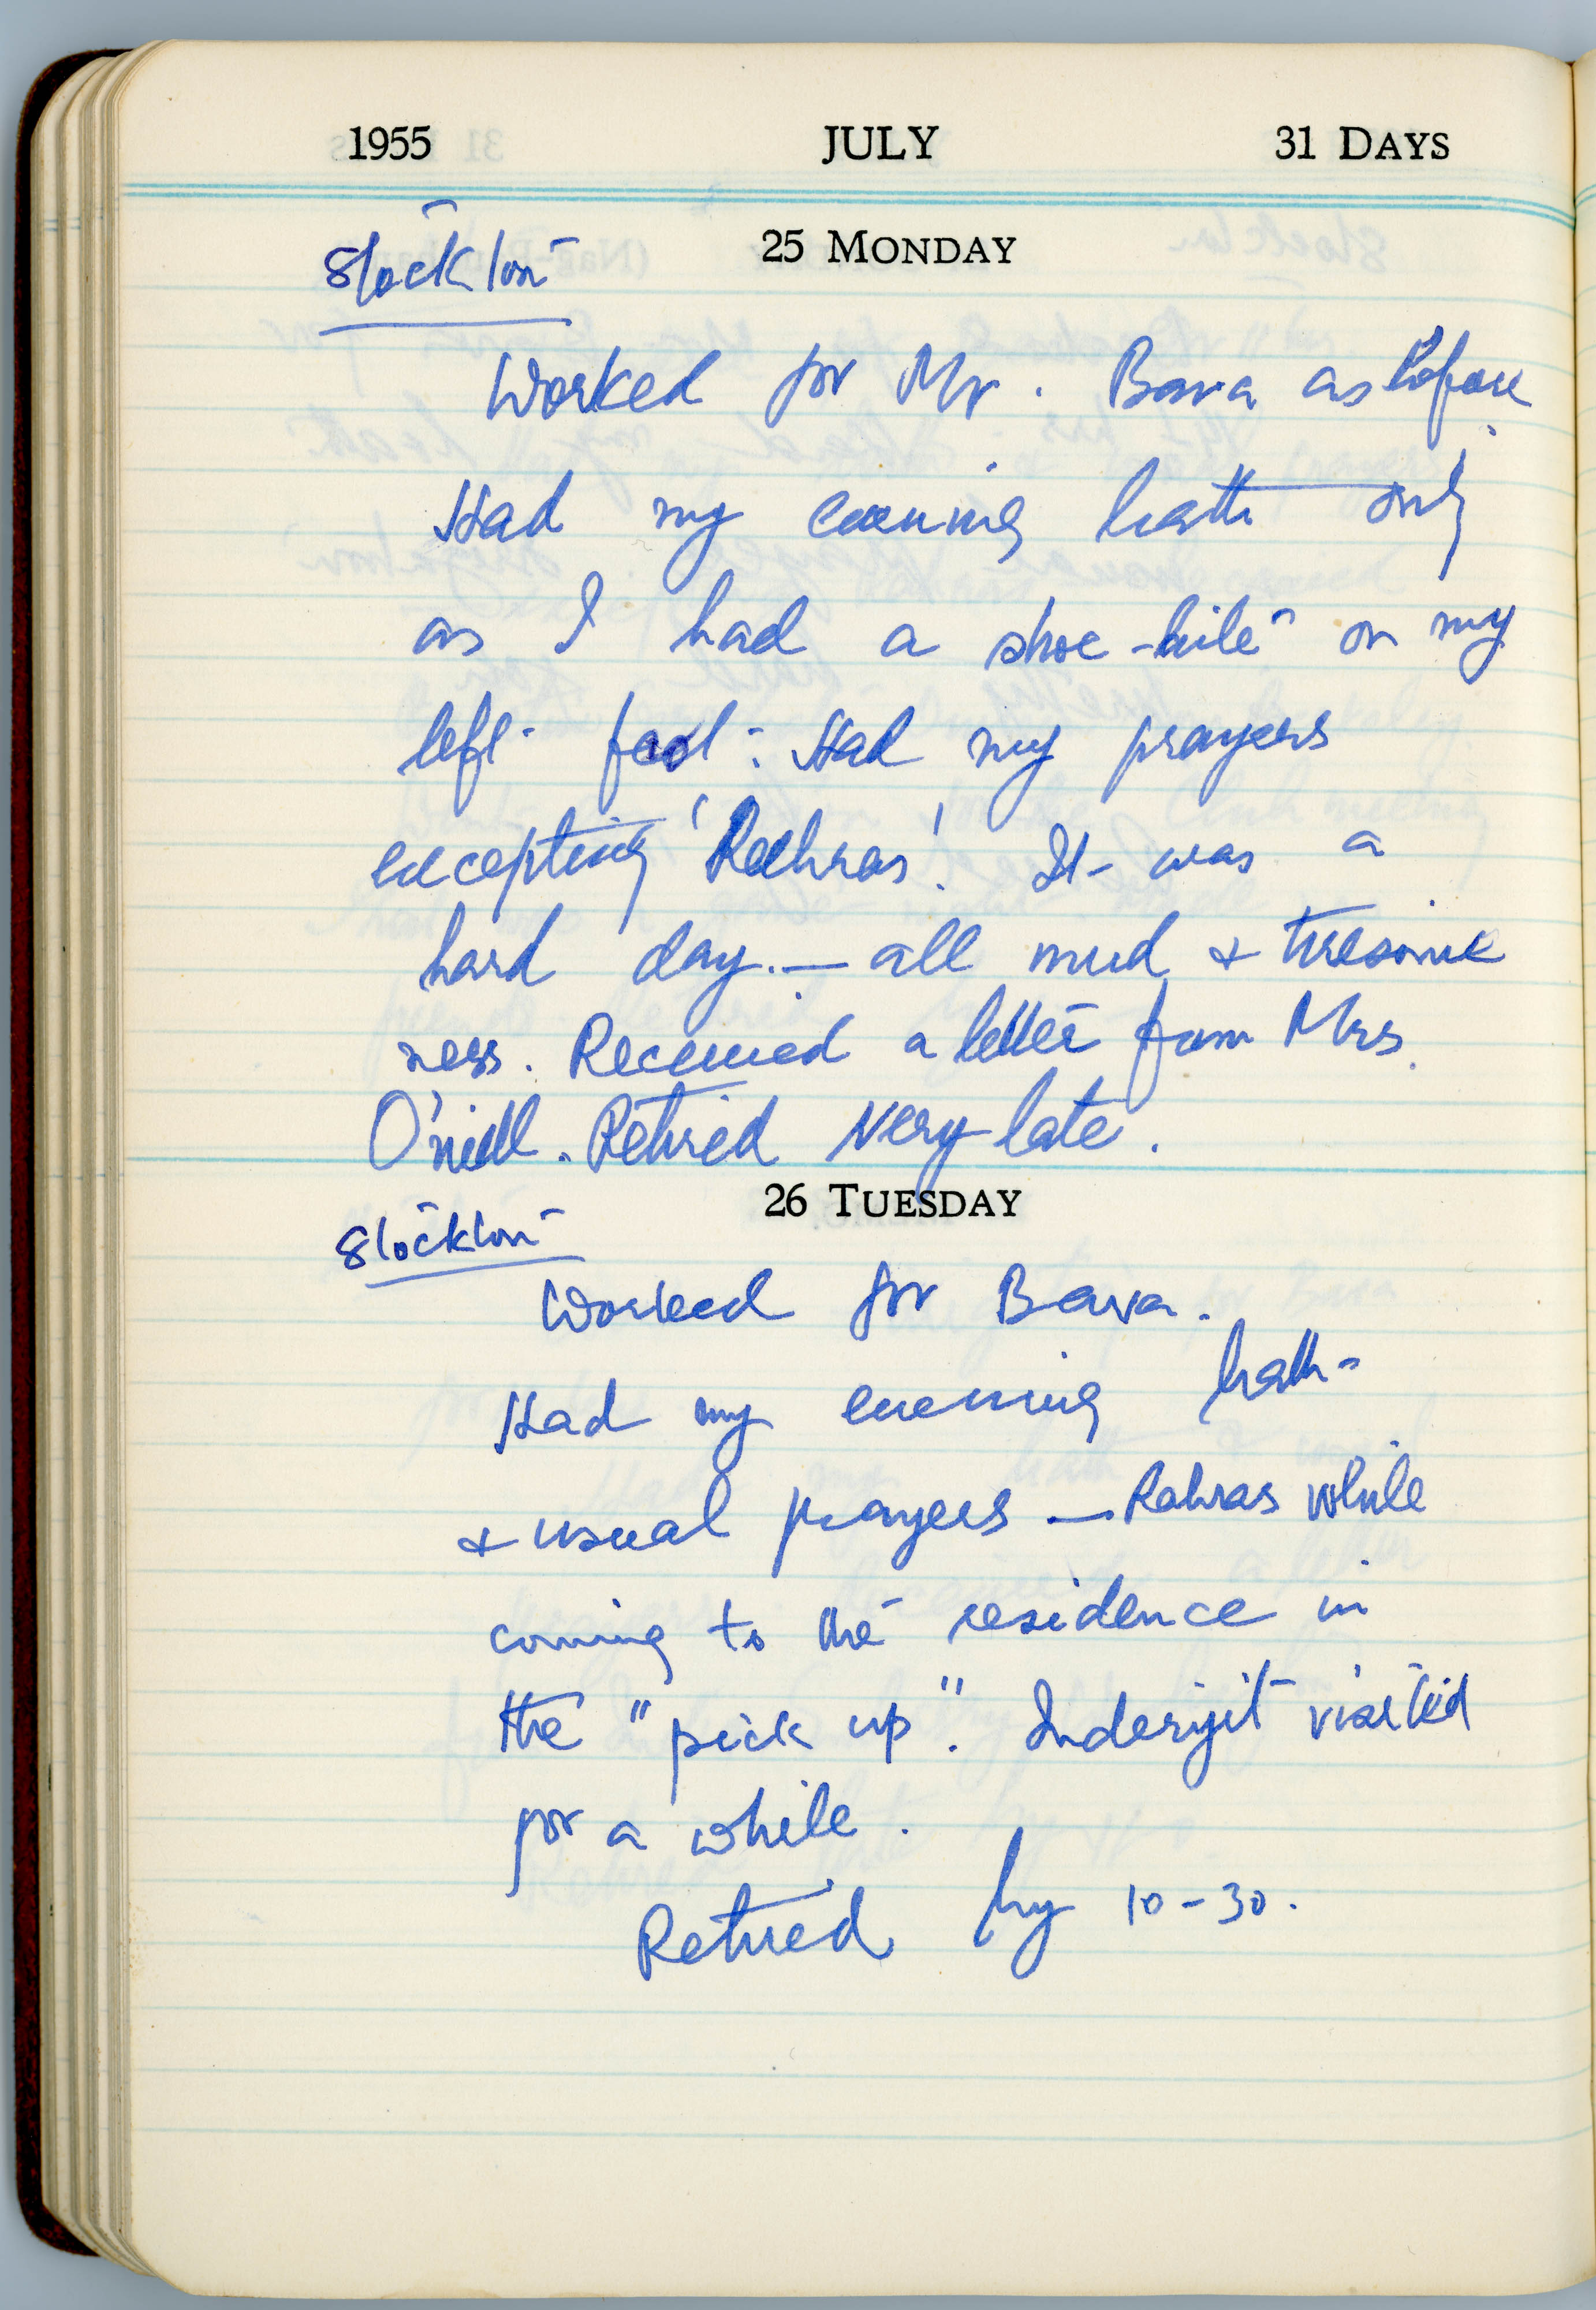 1955 JULY 31 DAYS
25 MONDAY
Stockton
Worked for Mr. Bava as before.
Had my evening bath only
as I had a shoe-bite on my
left foot. Had my prayers
excepting 'Rehras'. It was a
hard day. — all mud & tiresome
ness. Received a letter from Mrs.
O'niell. Retired very late.
26 TUESDAY
Stockton
Worked for Bava.
Had my evening bath
& usual prayers — Rahras while
coming to the residence in
the "pick up". Inderjit visited
for a while.
Retired by 10-30.